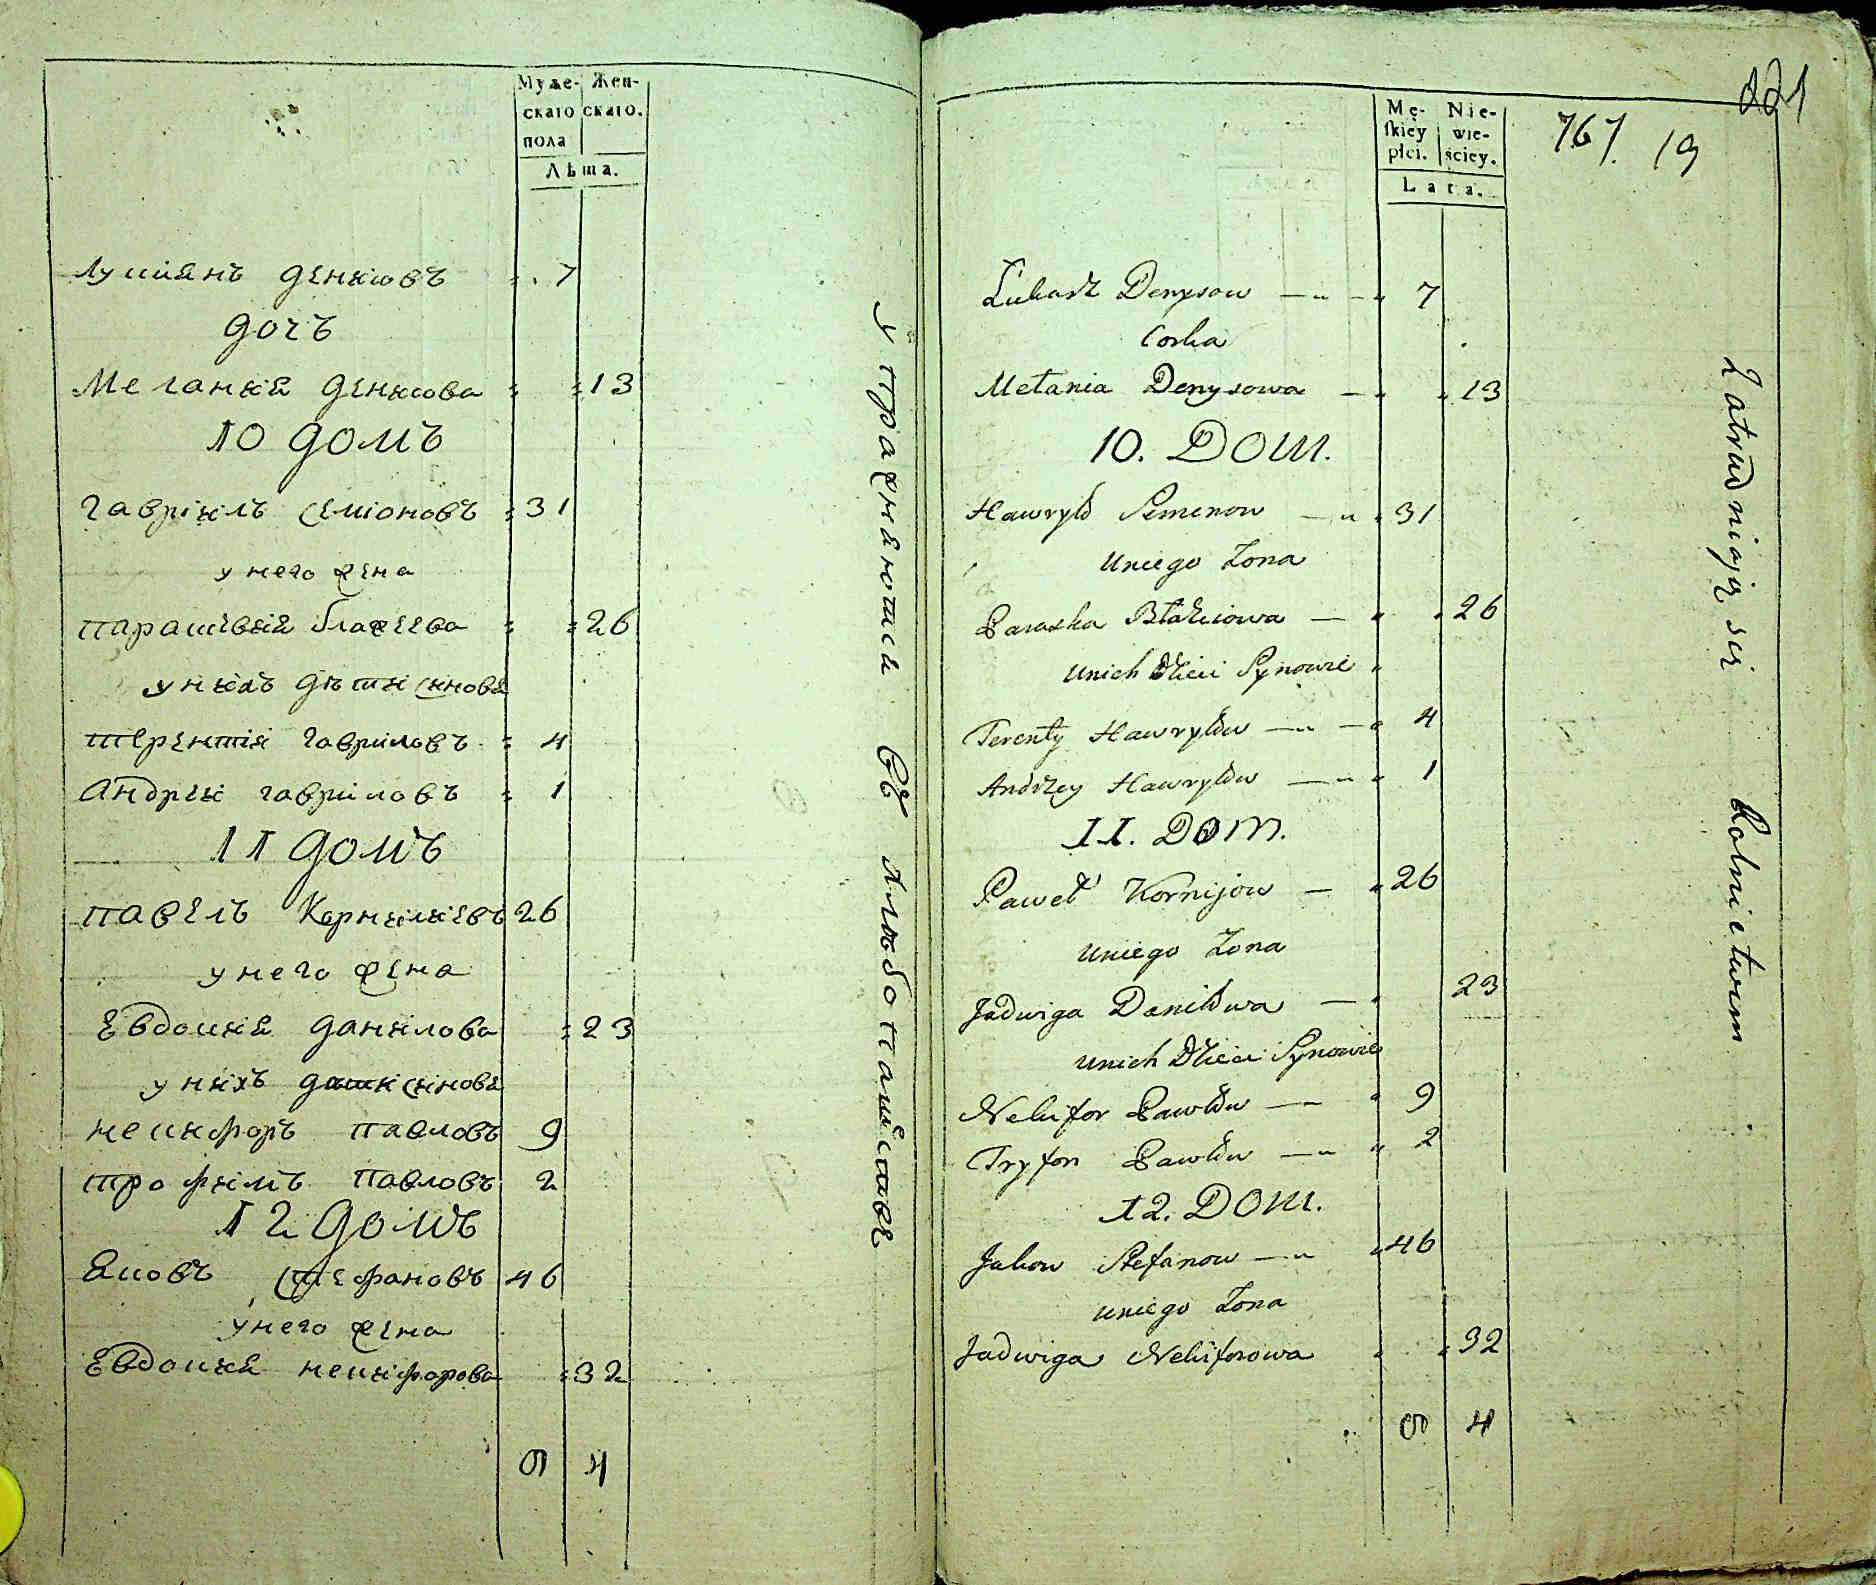 Муже- Жен-
скаго скаго.
пола
Лѣта.
Лукиянъ Денисовъ 7
дочь
Мелания Денисова 13
10 домъ
Гавріилъ Семіоновъ 31
у него жена
Парасковия Блажеева 26
у нихъ дѣти синовя
Терентій Гавриловъ 4
Андрей Гавриловъ 1
11 домъ
Павелъ Корнилиевъ 26
у него жена
Евдокия Данилова 23
у нихъ дѣти синовя
Некифоръ Павловъ 9
Трофимъ Павловъ 2
12 домъ
Яковъ Стефановъ 46
у него жена
Евдокия Некифорова 32
9 4
Упражняются въ
221
767. 19
Mę- Nie-
skiey wie-
płci. ściey.
Lata.
Łukasz Denysow 7
Corka
Mełania Denysowa 13
10. DOM.
Hawryło Semenow 31
Uniego Żona
Paraska Błażiowa 26
Unich Dzieci Synowie
Terenty Hawryłow 4
Andrzey Hawryłow 1
11. DOM.
Paweł Kornijow 26
Uniego Żona
Jadwiga Daniłowa 23
Unich Dzieci Synowie
Nekifor Pawłow 9
Tryfon Pawłow 2
12. DOM.
Jakow Stefanow 46
Uniego Żona
Jadwiga Nekiforowa 32
9 4
Zatrudniaią się Rolnictwem